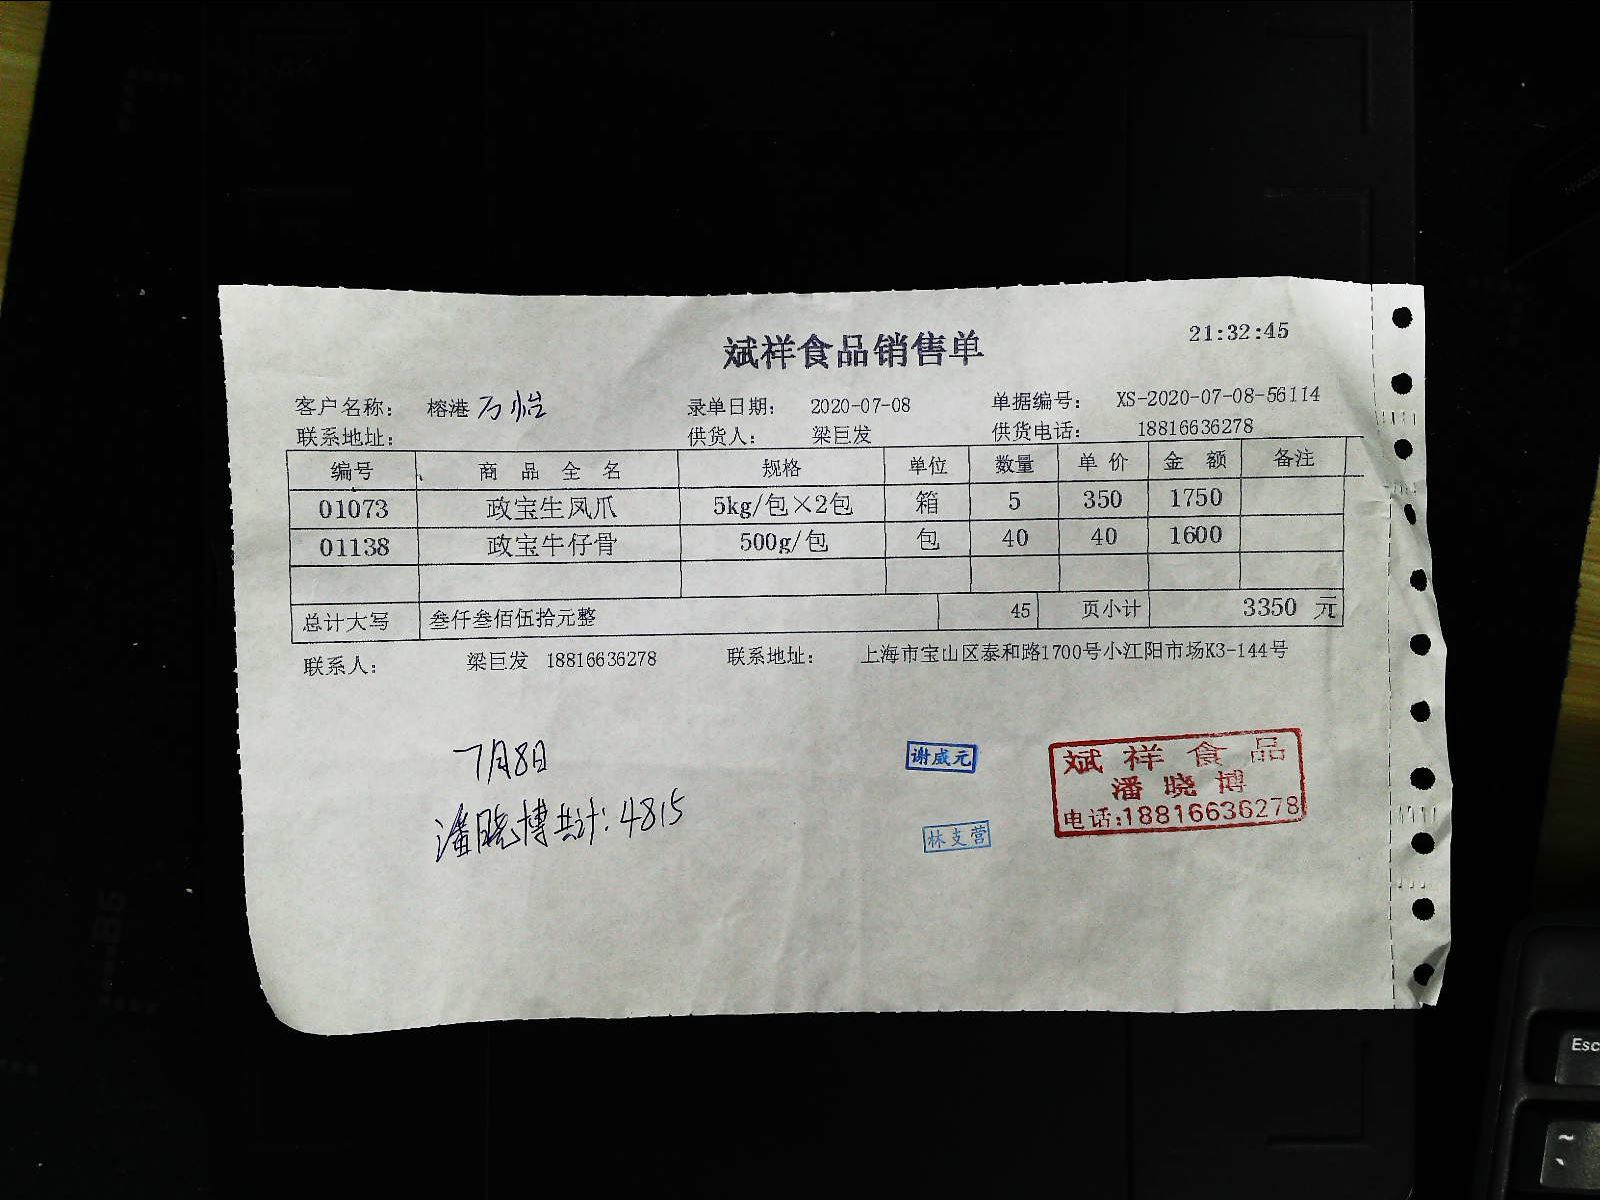 斌祥食品销售单
21:32:45
客户名称： 榕港 万怡 录单日期： 2020-07-08 单据编号： XS-2020-07-08-56114
联系地址： 供货人： 梁巨发 供货电话： 18816636278
编号 商品全名 规格 单位 数量 单价 金额 备注
01073 政宝生凤爪 5kg/包×2包 箱 5 350 1750
01138 政宝牛仔骨 500g/包 包 40 40 1600
总计大写 叁仟叁佰伍拾元整 45 页小计 3350 元
联系人： 梁巨发 18816636278 联系地址： 上海市宝山区泰和路1700号小江阳市场K3-144号
7月8日
潘晓博共计：4815
谢威元
林支营
斌祥食品
潘晓博
电话:18816636278
Esc
~